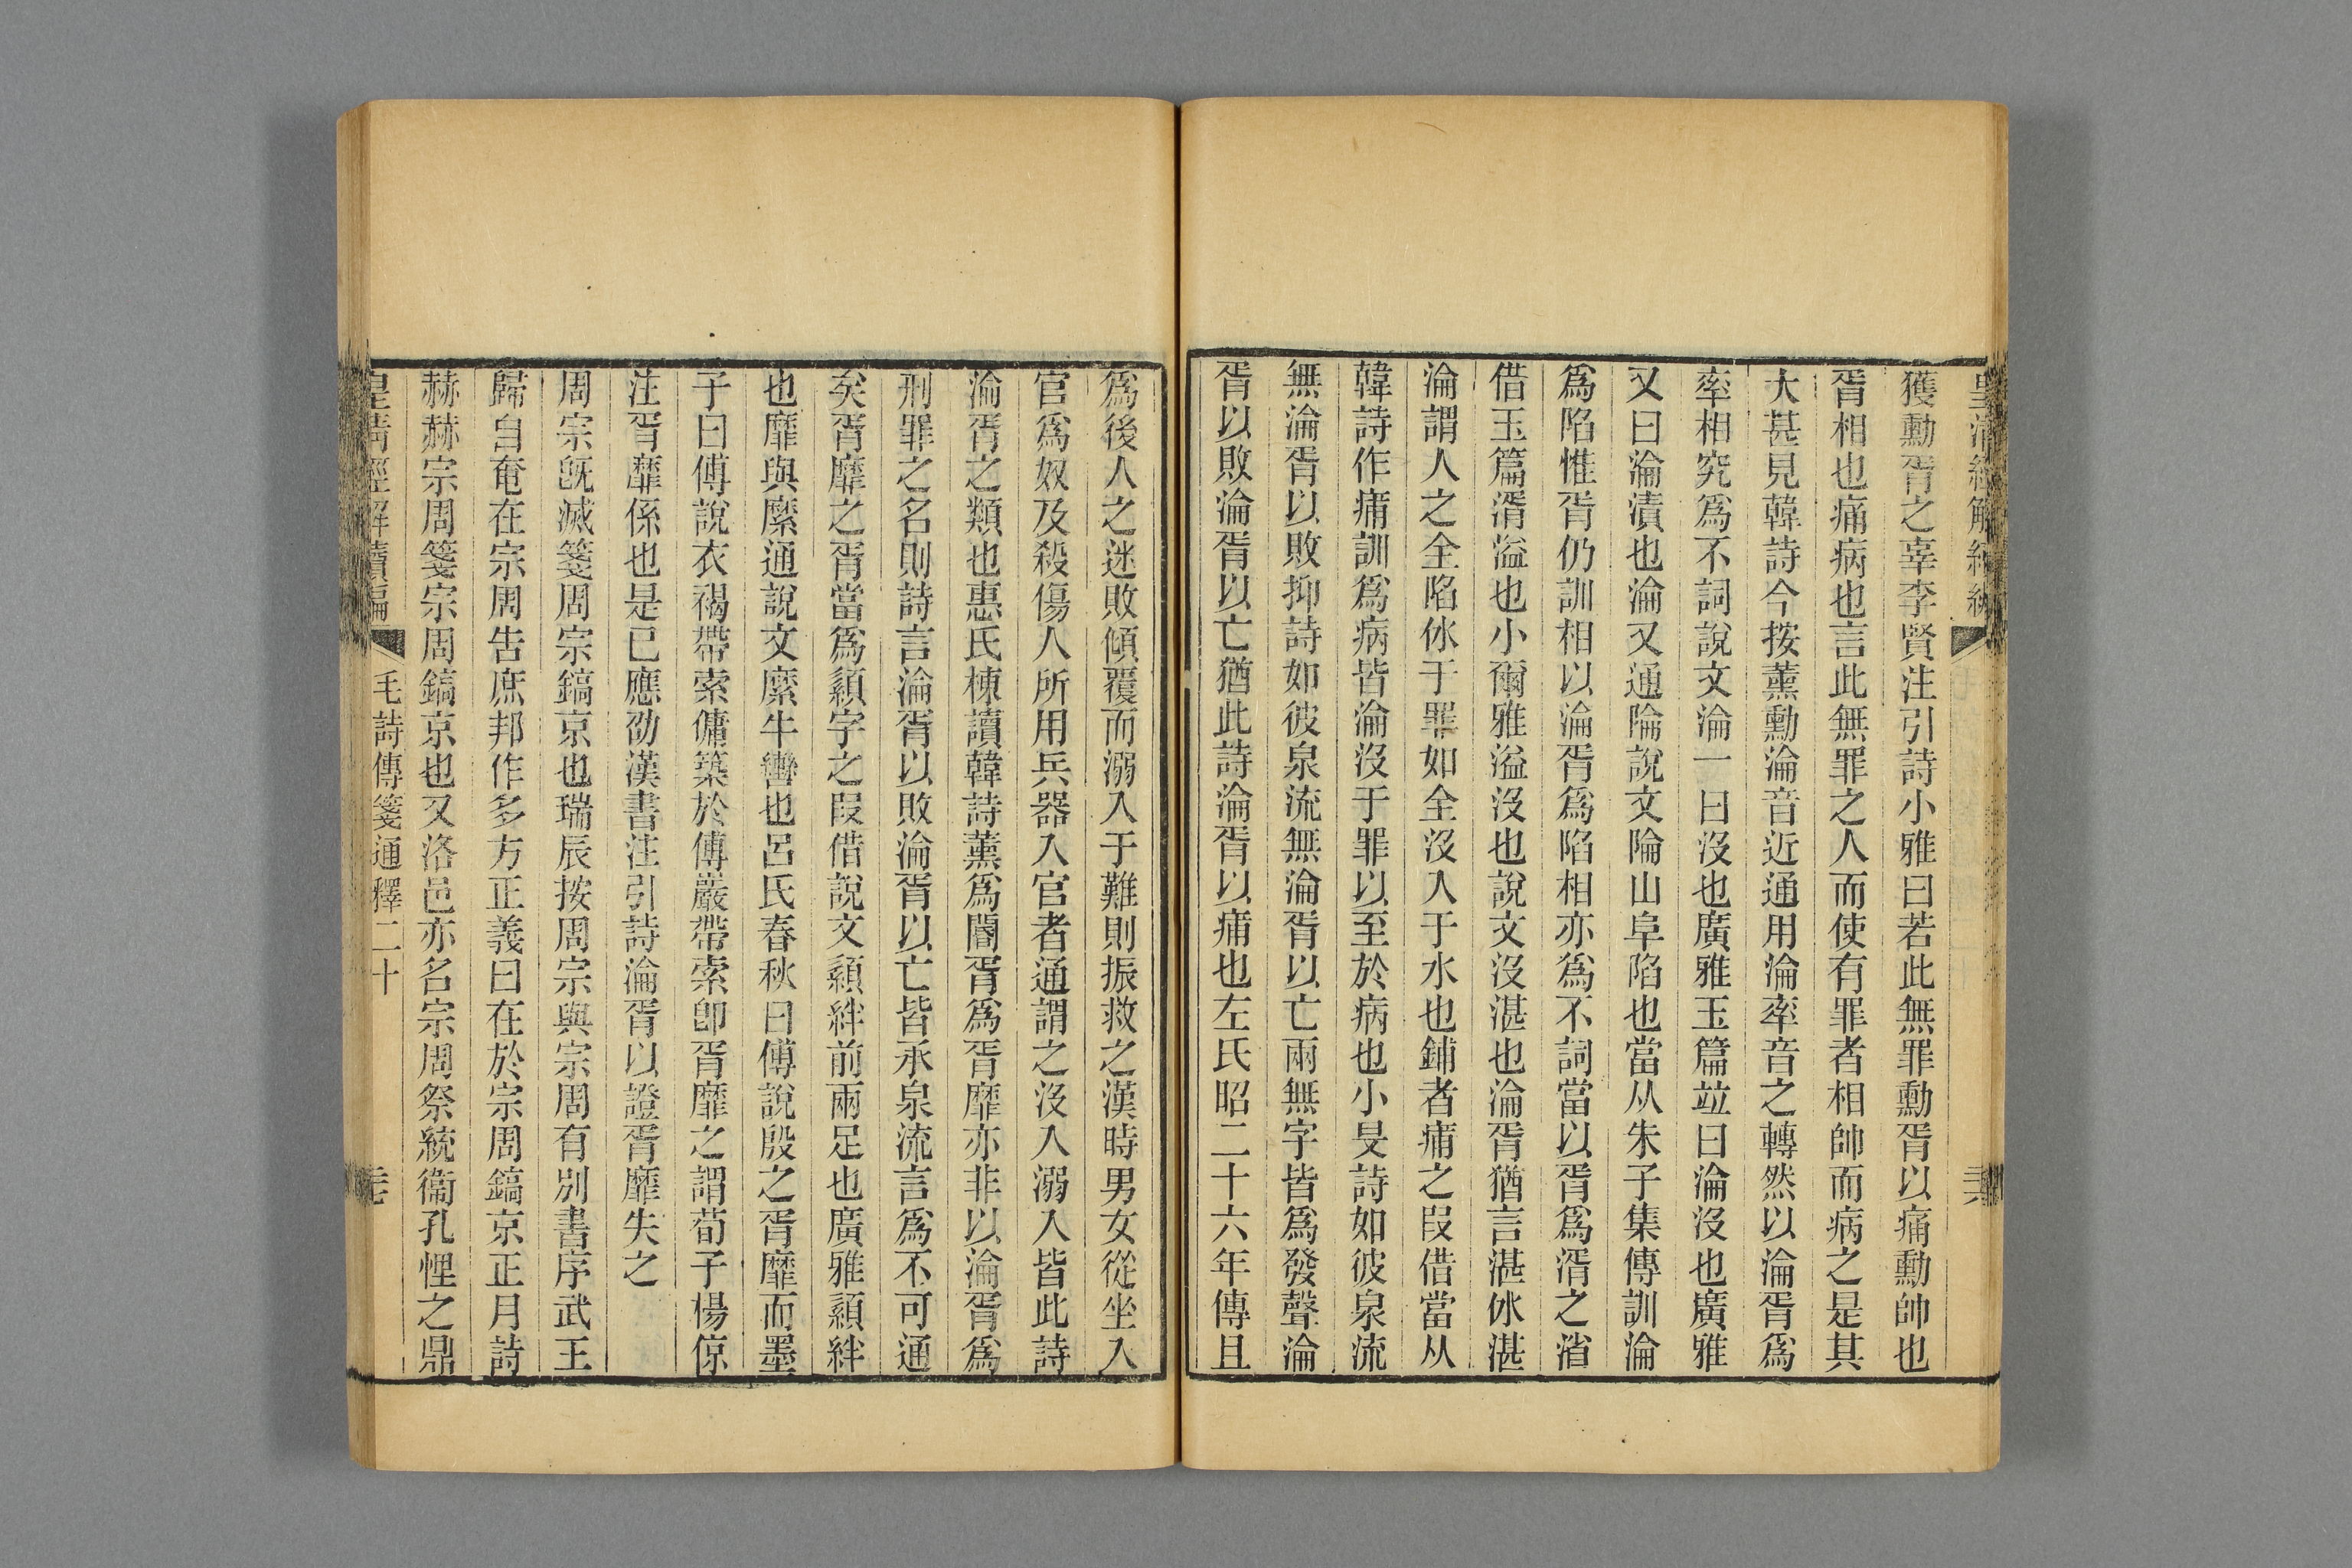 獲勳胥之辜李賢注引詩小雅曰若此無罪勳胥以痡勳帥也
胥相也痛病也言此無罪之人而使有罪者相帥而病之是其
大甚見韓詩今按薰勳淪音近通用淪率音之轉然以淪胥爲
率相究爲不詞說文淪一曰沒也廣雅玉篇竝曰淪沒也廣雅
又曰淪漬也淪又通陯說文陯山阜陷也當从朱子集傳訓淪
爲陷惟胥仍訓相以淪胥爲陷相亦爲不詞當以胥爲湑之渻
借玉篇湑溢也小爾雅溢沒也說文沒湛也淪胥猶言湛㲻湛
淪謂人之全陷㲻于罪如全沒入于水也鋪者痡之叚借當从
韓詩作痡訓爲病皆淪沒于罪以至於病也小旻詩如彼泉流
無淪胥以敗抑詩如彼泉流無淪胥以亡兩無字皆爲發聲淪
胥以敗淪胥以亡猶此詩淪胥以痡也左氏昭二十六年傳且
爲後人之迷敗傾覆而溺入于難則振救之漢時男女從坐入
官爲奴及殺傷人所用兵器入官者通謂之沒入溺入皆此詩
淪胥之類也惠氏棟讀韓詩薰爲閽胥爲胥靡亦非以淪胥爲
刑罪之名則詩言淪胥以敗淪胥以亡皆承泉流言爲不可通
矣胥靡之胥當爲䋶字之叚借說文䋶絆前兩足也廣雅䋶絆
也靡與縻通說文縻牛轡也呂氏春秋曰傅說殷之胥靡而墨
子曰傅說衣褐帶索傭築於傅巖帶索卽胥靡之謂荀子楊倞
注胥靡係也是已應劭漢書注引詩淪胥以證胥靡失之
周宗旣滅箋周宗鎬京也瑞辰按周宗與宗周有別書序武王
歸自奄在宗周告庶邦作多方正義曰在於宗周鎬京正月詩
赫赫宗周箋宗周鎬京也又洛邑亦名宗周祭統衞孔悝之鼎
皇淸經解續編 毛詩傳箋通釋二十